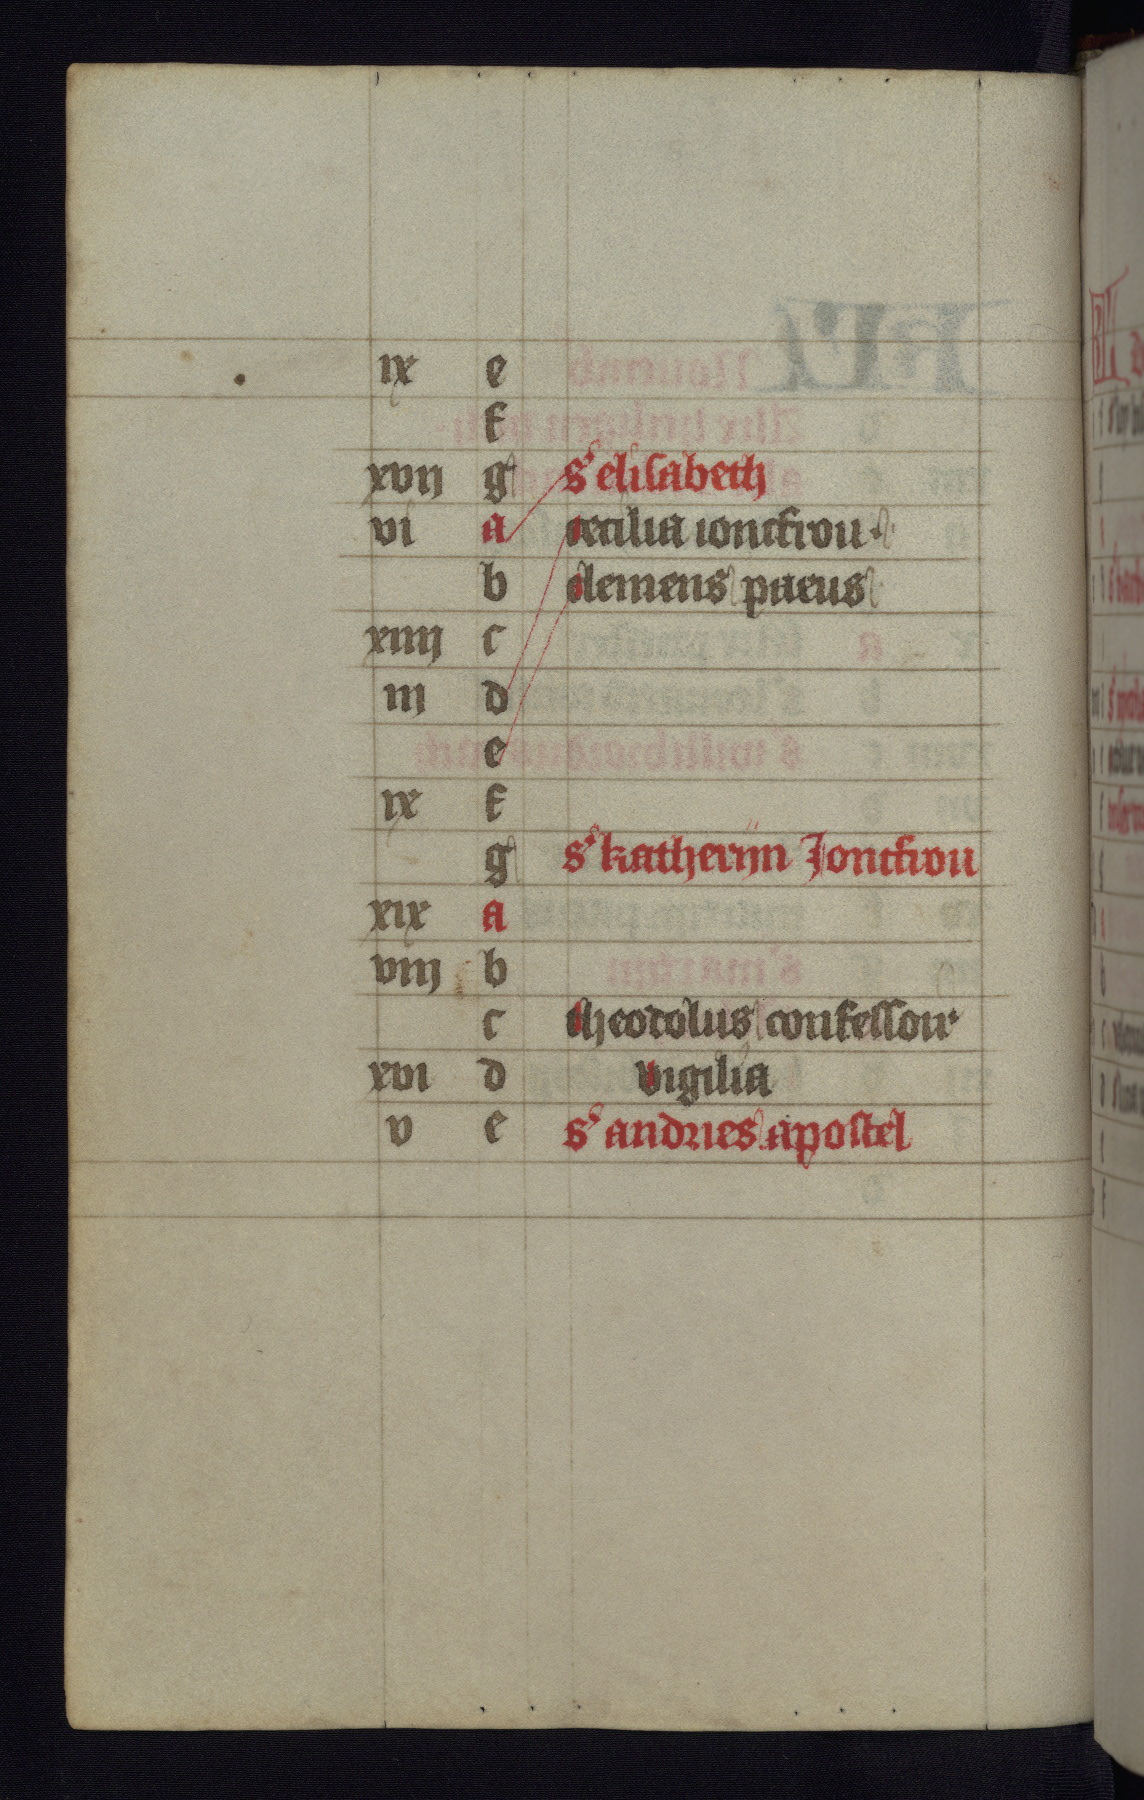 ix e
f
xvij g s' elisabeth
vi a cecilia ioncfrou
b clemens paeus
xiiij c
iij d
e
ix f
g s' katherijn Joncfrou
xix a
viij b
c theodolus confessoir
xvi d vigilia
v e s' andries apostel